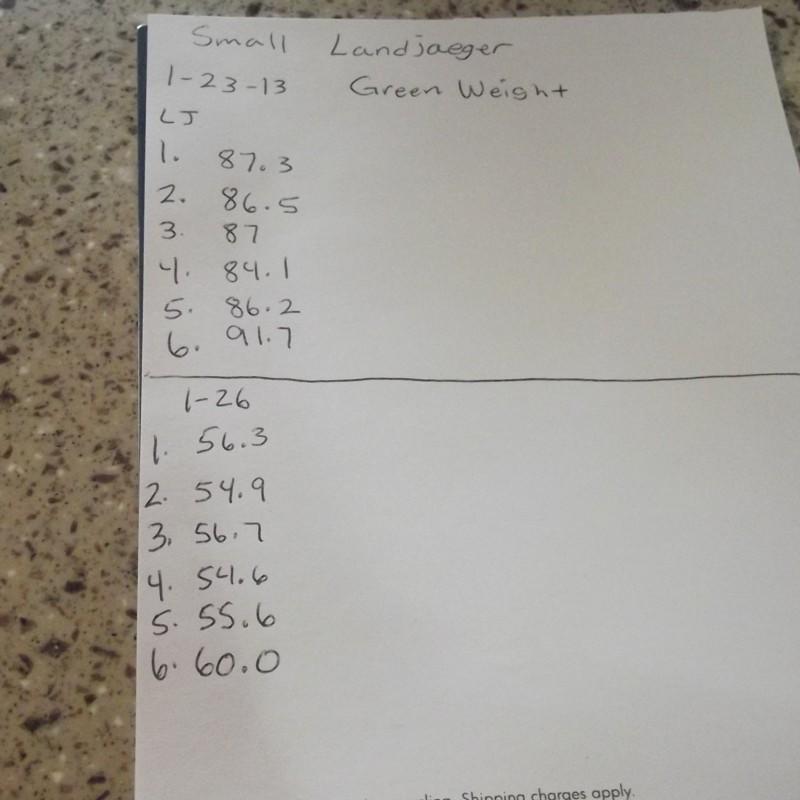 Small Landjaeger
1-23-13 Green Weight
LJ
1. 87.3
2. 86.5
3. 87
4. 84.1
5. 86.2
6. 91.7
1-26
1. 56.3
2. 54.9
3. 56.7
4. 54.6
5. 55.6
6. 60.0
Shipping charges apply.